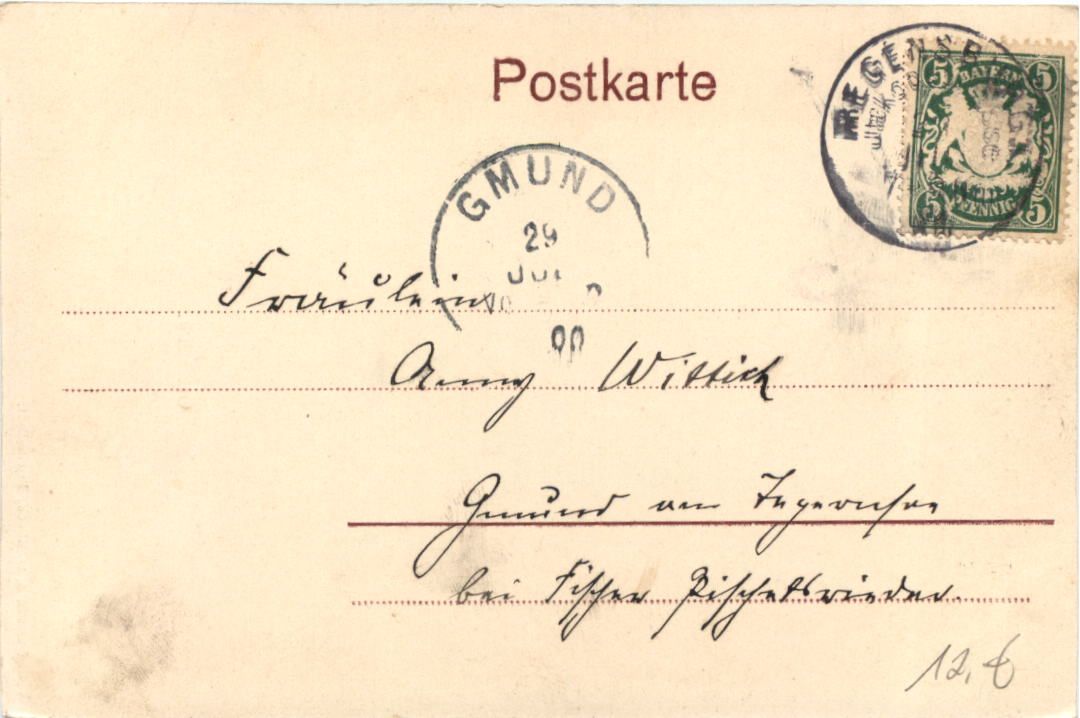 Postkarte
REGENSBURG
5 BAYERN 5
5 PFENNIG 5
GMUND
29
JUL
00
Fräulein
Anny Wittich
Gmund am Tegernsee
bei Fischer Pischetsrieder.
12,€